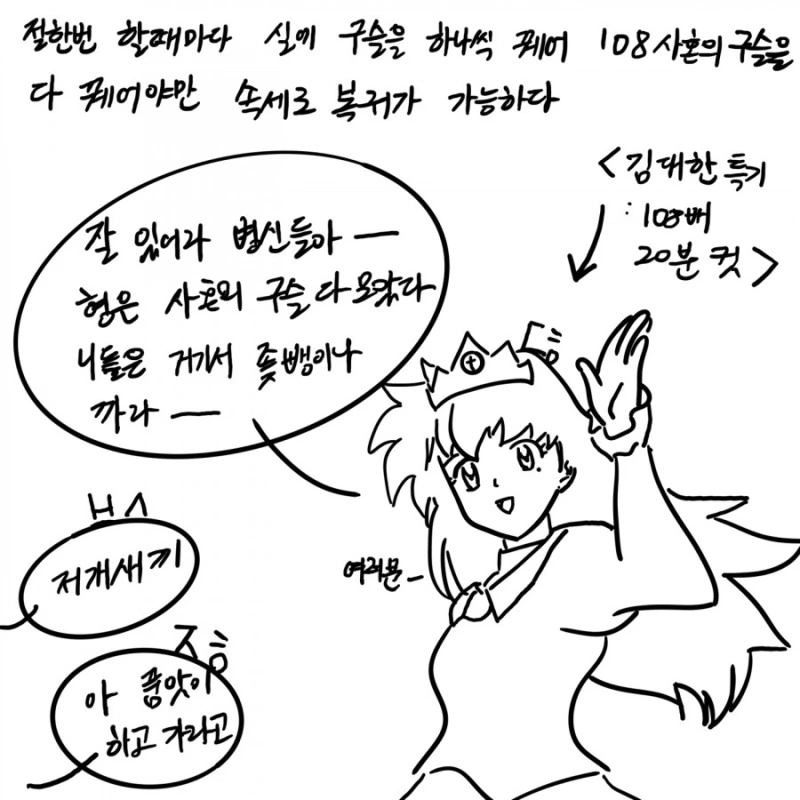 절한번 할때마다 실에 구슬을 하나씩 꿰어 108사혼의 구슬을
다 꿰어야만 속세로 복귀가 가능하다
<김대한 특기
: 108배
20분 컷>
잘 있어라 병신들아 —
형은 사혼의 구슬 다 모았다
니들은 거기서 좆뺑이나
까라 —
여러분_
저개새끼
아 품앗이
하고 가라고